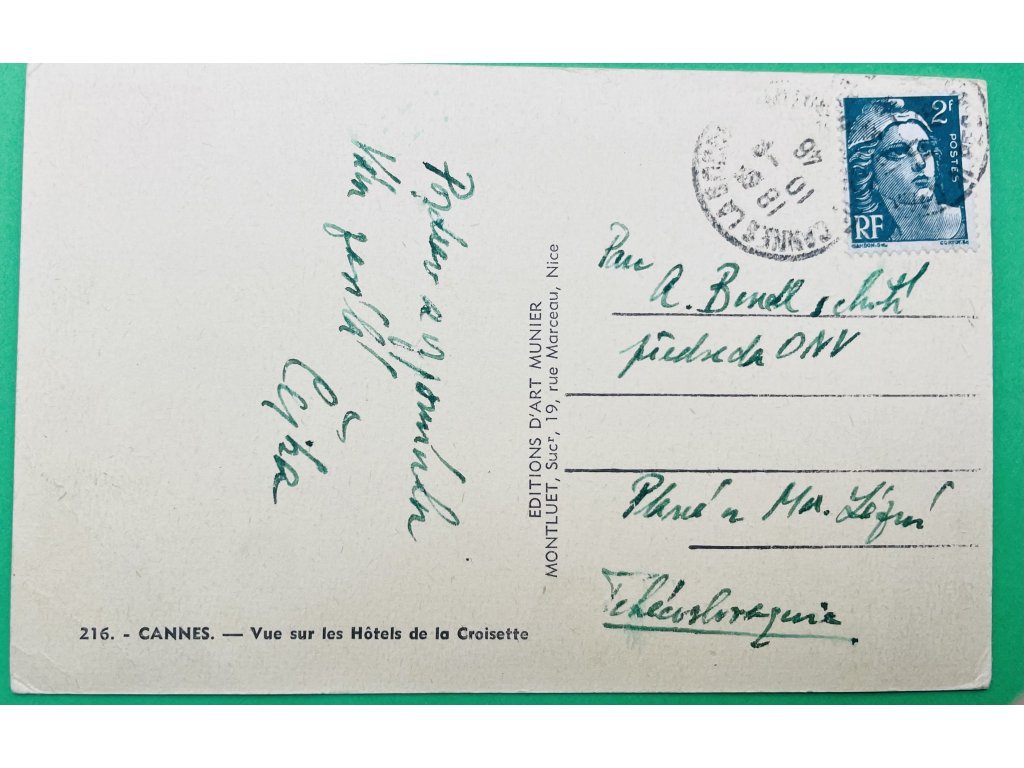 Pozdrav a vzpomínku
Vám zasílá
Čejka
216. - CANNES. — Vue sur les Hôtels de la Croisette
EDITIONS D'ART MUNIER
MONTLUET, Sucʳ, 19, rue Marceau, Nice
CANNES LA
18
10
46
2f
POSTES
RF
GANDON
Pan
A.
předseda ONV
Planá u Mar. Lázní
Tchécoslovaquie